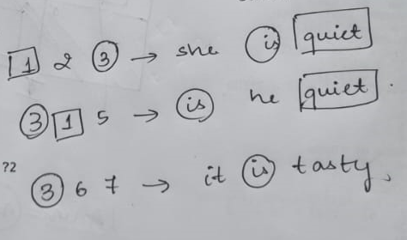 1 2 3 → she is quiet
3 1 5 → is he quiet.
??
3 6 7 → it is tasty,